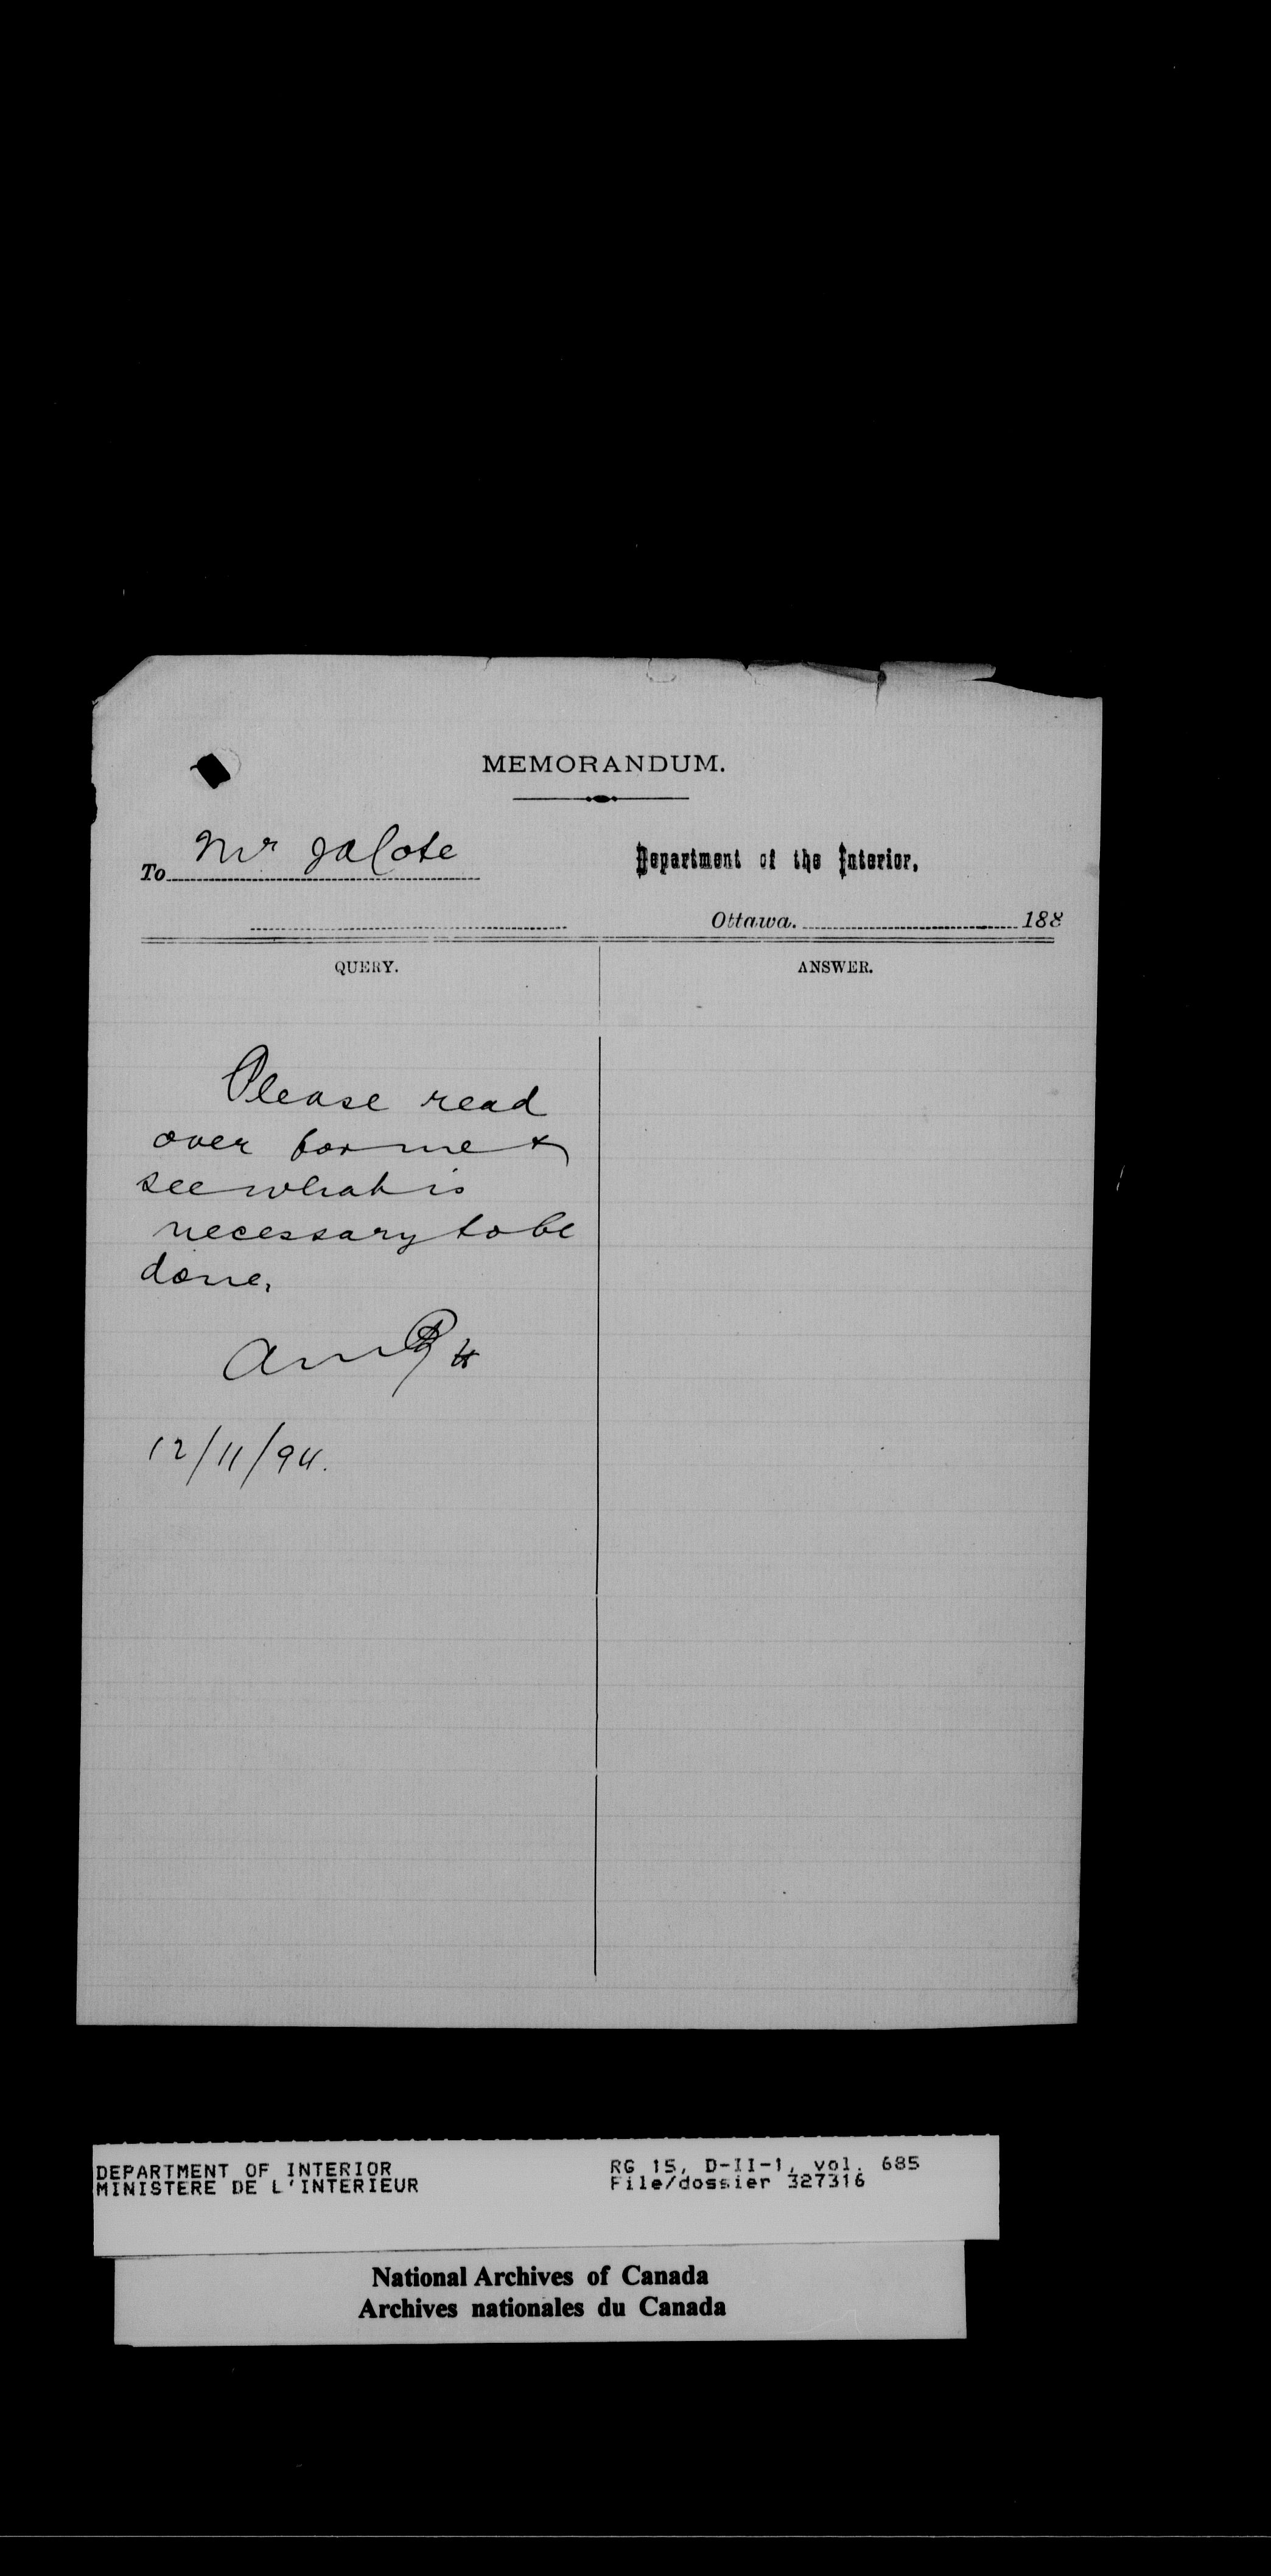 MEMORANDUM.
To Mr JA Cote
Department of the Interior,
Ottawa. 188
QUERY.
ANSWER.
Please read
over for me &
see what is
necessary to be
done.
12/11/94.
DEPARTMENT OF INTERIOR
MINISTERE DE L'INTERIEUR
RG 15, D-II-1, vol. 685
File/dossier 327316
National Archives of Canada
Archives nationales du Canada